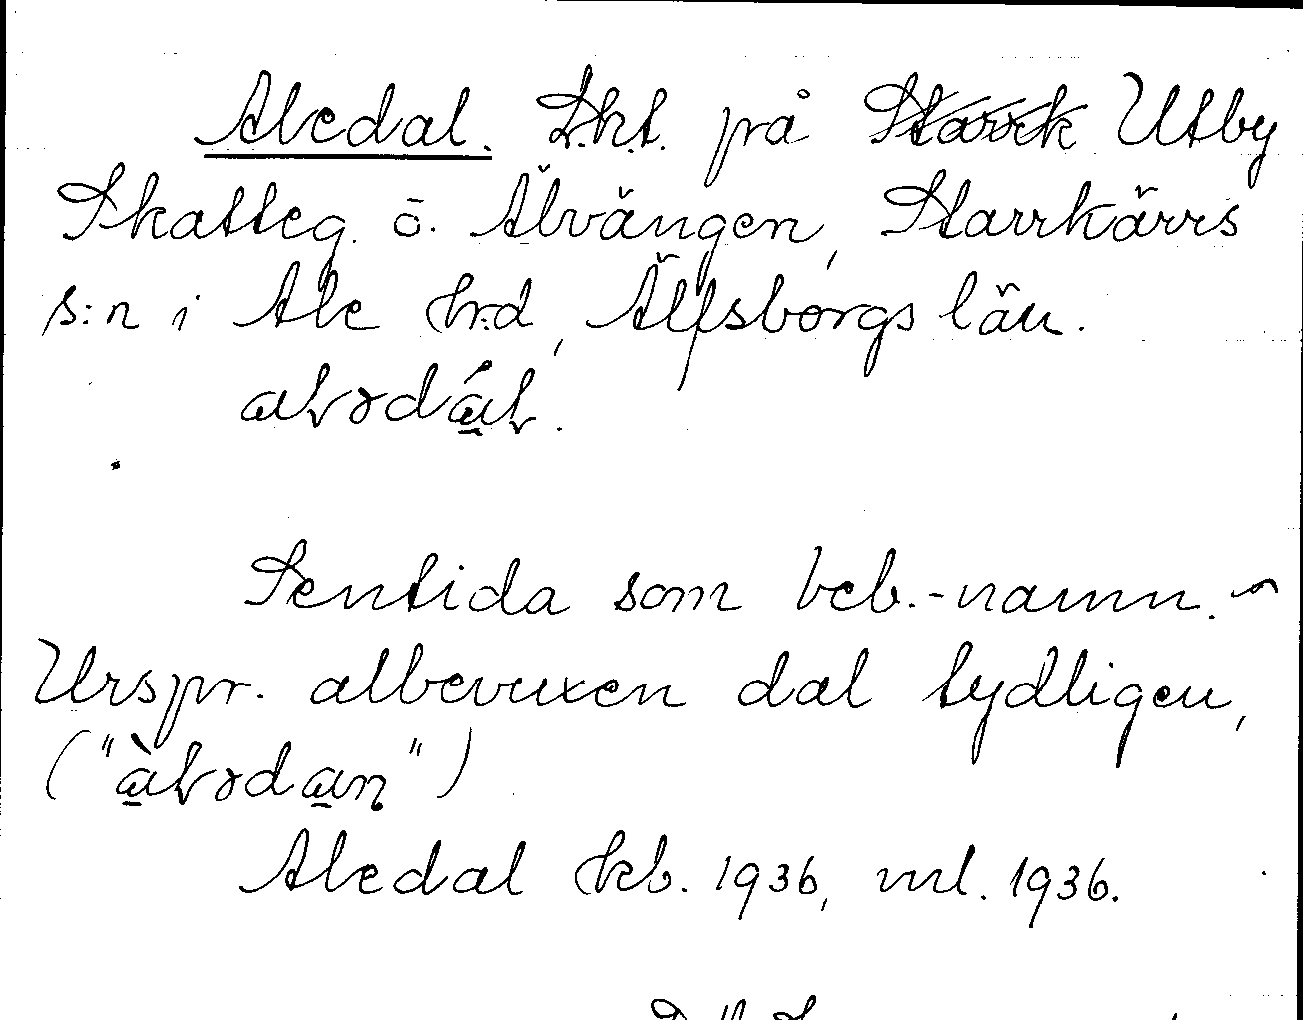 Aledal. L.h.t. på Starrk Utby
Skatteg. ö. Älvängen, Starrkärrs
s:n i Ale hrd, Älfsborgs län.
alədál.
Sentida som beb.-namn.
Urspr. albevuxen dal tydligen,
("àlədan")
Aledal kb. 1936, ml. 1936.